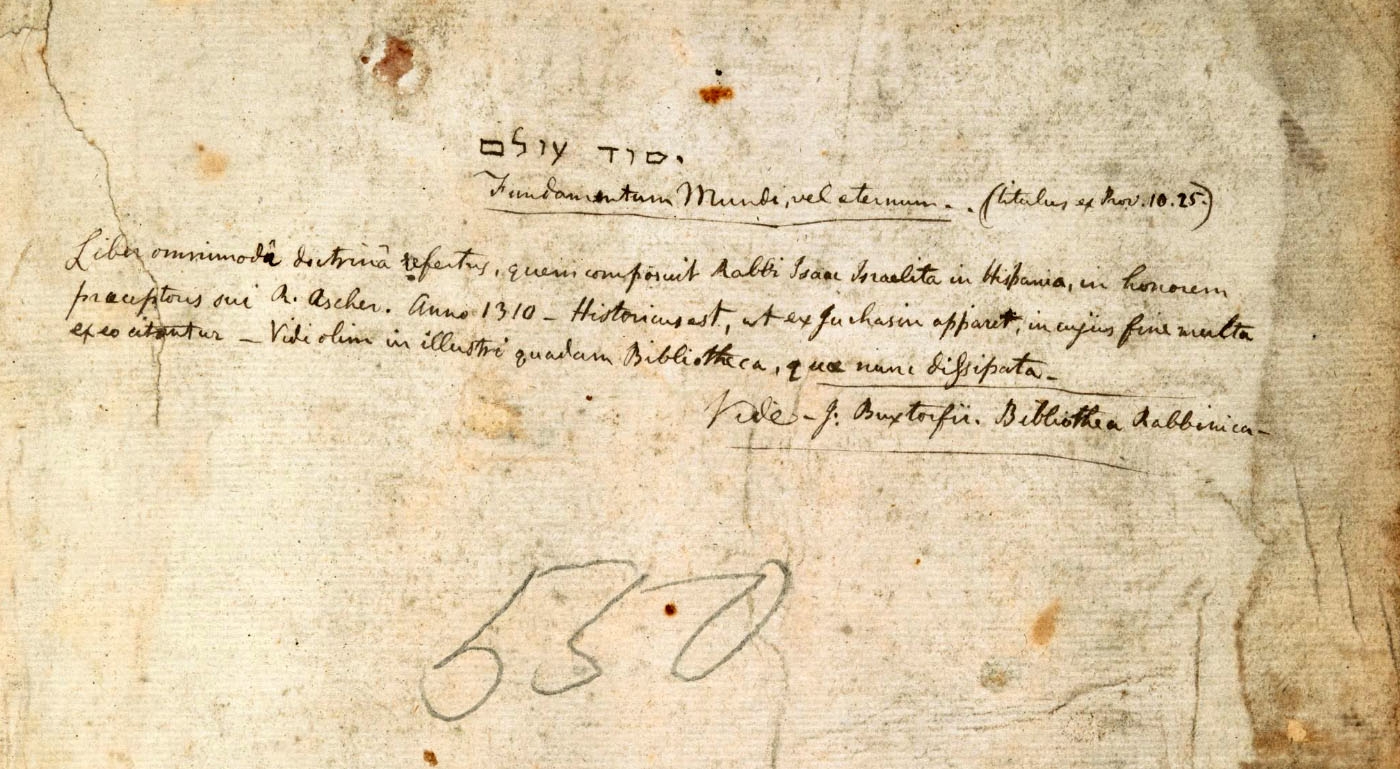 יסוד עולם
Fundamentum Mundi, vel eternum. . (titulus ex Prov. 10. 25.)
Liber omnimodâ doctrinâ refertus, quem composuit Rabbi Isaac Israelita in Hispania, in honorem
præceptoris sui R. Ascher. Anno 1310 – Historicus est, ut ex Juchasin apparet, in cujus fine multa
ex eo citantur – Vidi olim in illustri quadam Bibliotheca, quæ nunc dissipata –
Vide – J: Buxtorfii. Bibliothea Rabbinica –
550